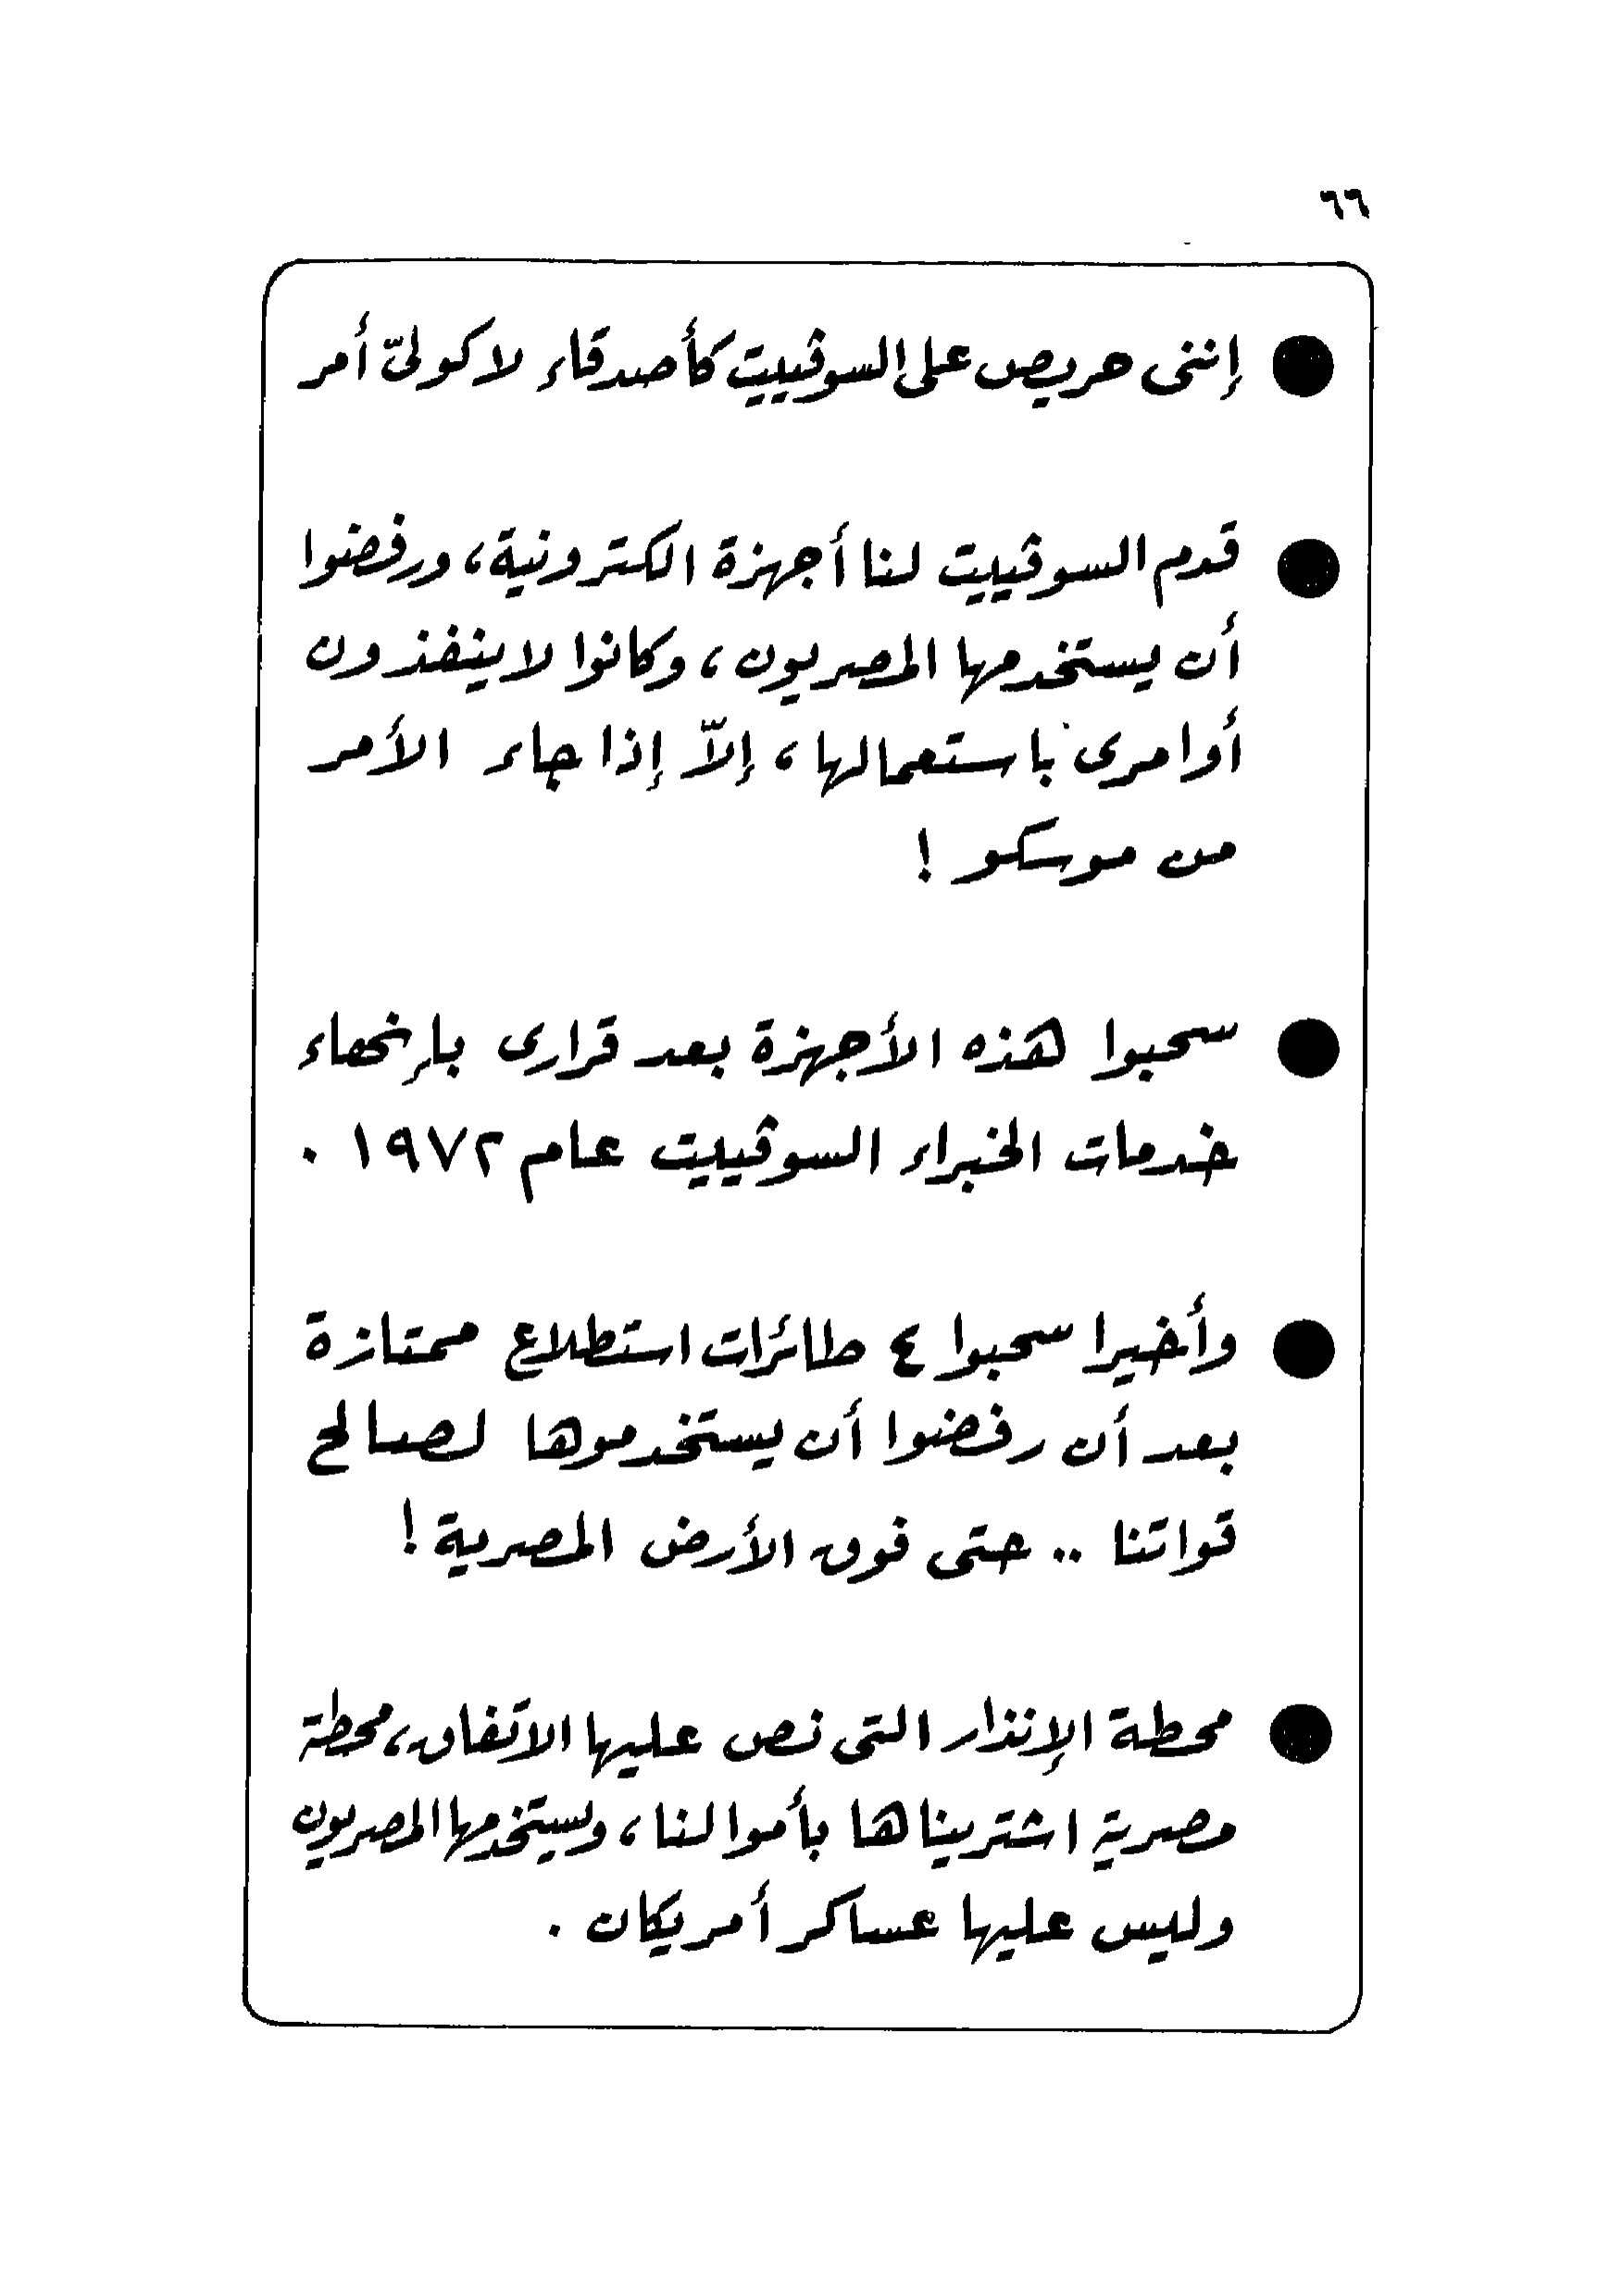 ٦٦
● إننى حريص على السوڤييت كأصدقاء لا كولىّ أمر
● قدم السوڤييت لنا أجهزة الكترونية، ورفضوا
أن يستخدمها المصريون، وكانوا لا ينفذون
أوامرى باستعمالها، إلاّ إذا جاء الأمر
من موسكو !
● سحبوا هذه الأجهزة بعد قرارى بإنهاء
خدمات الخبراء السوڤييت عام ١٩٧٢ .
● وأخيرا سحبوا ٤ طائرات استطلاع ممتازة
بعد أن رفضوا أن يستخدموها لصالح
قواتنا .. حتى فوق الأرض المصرية !
● محطة الإنذار التى نص عليها الاتفاق، محطة
مصرية اشتريناها بأموالنا، ويستخدمها المصريون
وليس عليها عساكر أمريكان .